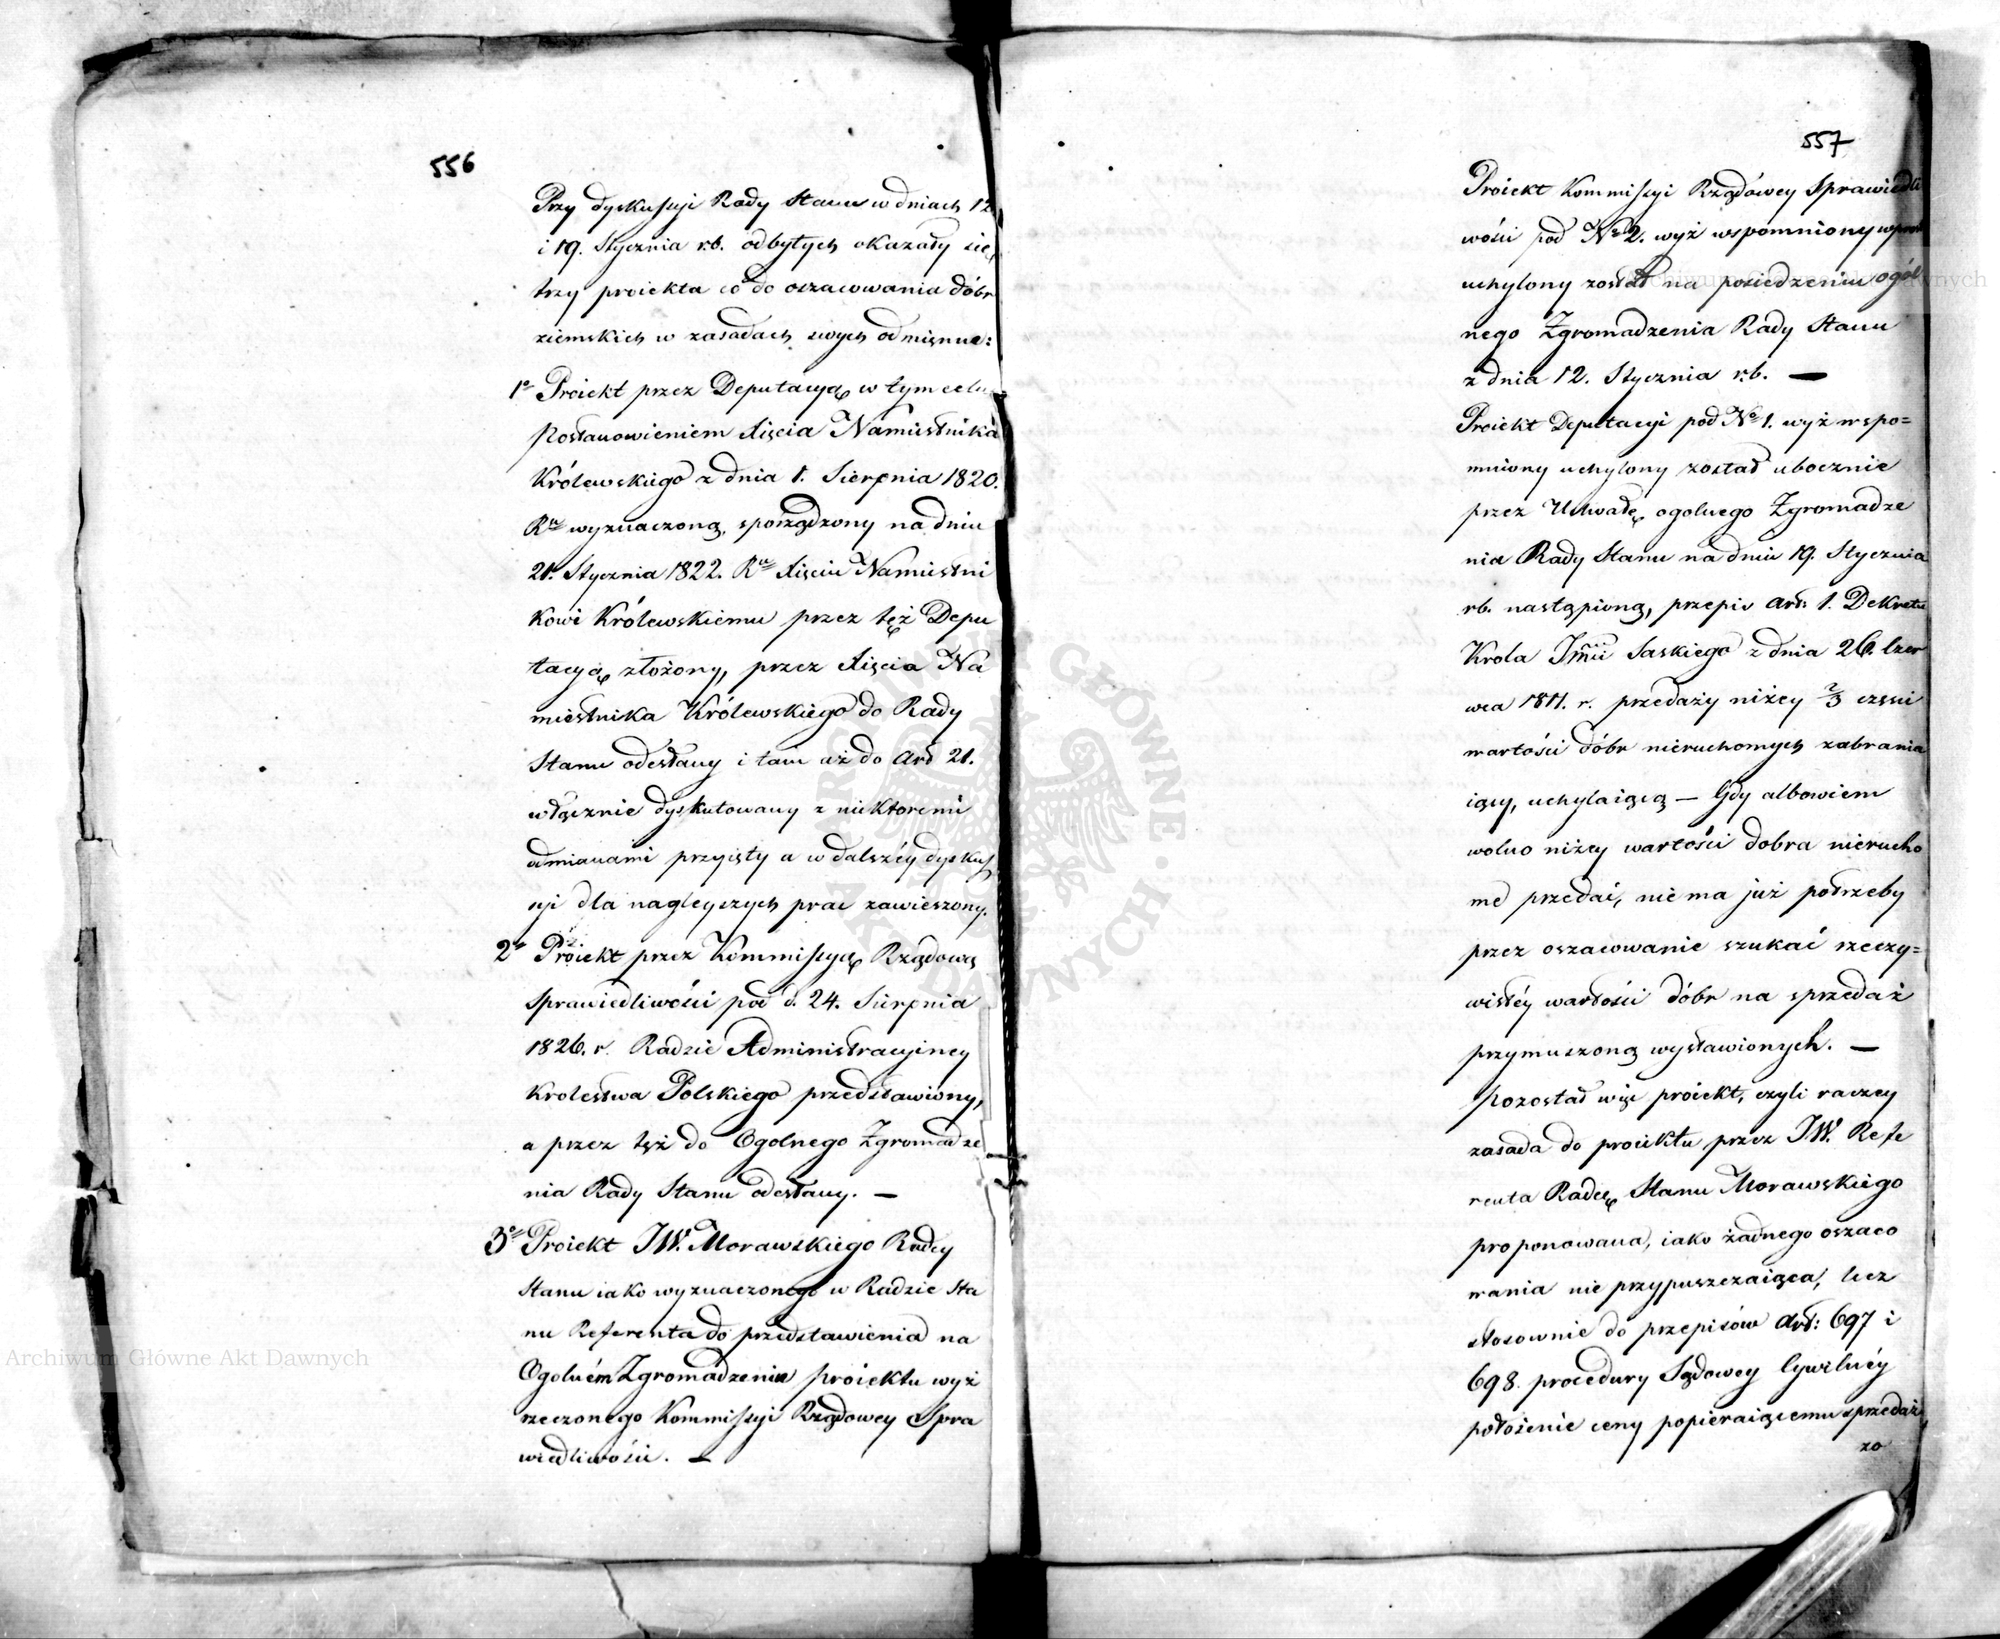 556
Przy dyskussyi Rady Stanu w dniach 12
i 19. Stycznia r.b. odbytych okazały się
trzy proiekta co do oszacowania dóbr
ziemskich w zasadach swych odmienne:
1o Proiekt przez Deputacyą w tym celu
Postanowieniem Xięcia Namiestnika
Królewskiego z dnia 1. Sierpnia 1820.
Ru wyznaczoną, sporządzony na dniu
21. Stycznia 1822. Ru Xięciu Namiestni
kowi Królewskiemu przez tęż Depu
tacyą złożony, przez Xięcia Na
miestnika Królewskiego do Rady
Stanu odesłany i tam aż do Art 21.
włącznie dyskutowany z niektoremi
odmianami przyięty a w dalszéy dyskus
syi dla nagleyszych prac zawieszony.
2o Proiekt przez Kommissyą Rządową
Sprawiedliwości pod d. 24. Sierpnia
1826. r. Radzie Administracyiney
Krolestwa Polskiego przedstawiony,
a przez tęż do Ogolnego Zgromadze
nia Rady Stanu odesłany. —
3o Proiekt JW. Morawskiego Radcy
Stanu iako wyznaczonego w Radzie Sta
nu Referenta do przedstawienia na
Ogolném Zgromadzeniu proiektu wyż
rzeczonego Kommissyi Rządowey Spra
wiedliwości. —
557
Proiekt Kommissyi Rządowey Sprawiedli
wości pod No 2. wyż wspomniony wprost
uchylony został na posiedzeniu ogól
nego Zgromadzenia Rady Stanu
z dnia 12. Stycznia r.b. —
Proiekt Deputacyi pod No 1. wyż wspo=
mniony uchylony został ubocznie
przez Uchwałę ogolnego Zgromadze
nia Rady Stanu na dniu 19. Stycznia
rb. nastąpioną, przepis Art: 1. Dekretu
Krola Jmci Saskiego z dnia 26. Czer
wca 1811. r. przedaży niżey 2/3 części
wartości dóbr nieruchomych zabrania
iący, uchylaiącą — Gdy albowiem
wolno niżey wartości dobra nierucho
me przedać, nie ma już potrzeby
przez oszacowanie szukać rzeczy=
wistéy wartości dóbr na sprzedaż
przymuszoną wystawionych. —
Pozostał więc proiekt, czyli raczey
zasada do proiektu przez JW. Refe
renta Radcę Stanu Morawskiego
proponowana, iako żadnego oszaco
wania nie przypuszczaiąca, lecz
stosownie do przepisów Art: 697 i
698. procedury Sądowey Cywilnéy
położenie ceny popieraiącemu sprzedaż
zo
Archiwum Główne Akt Dawnych
Archiwum Główne Akt Dawnych
ARCHIWUM GŁÓWNE AKT DAWNYCH